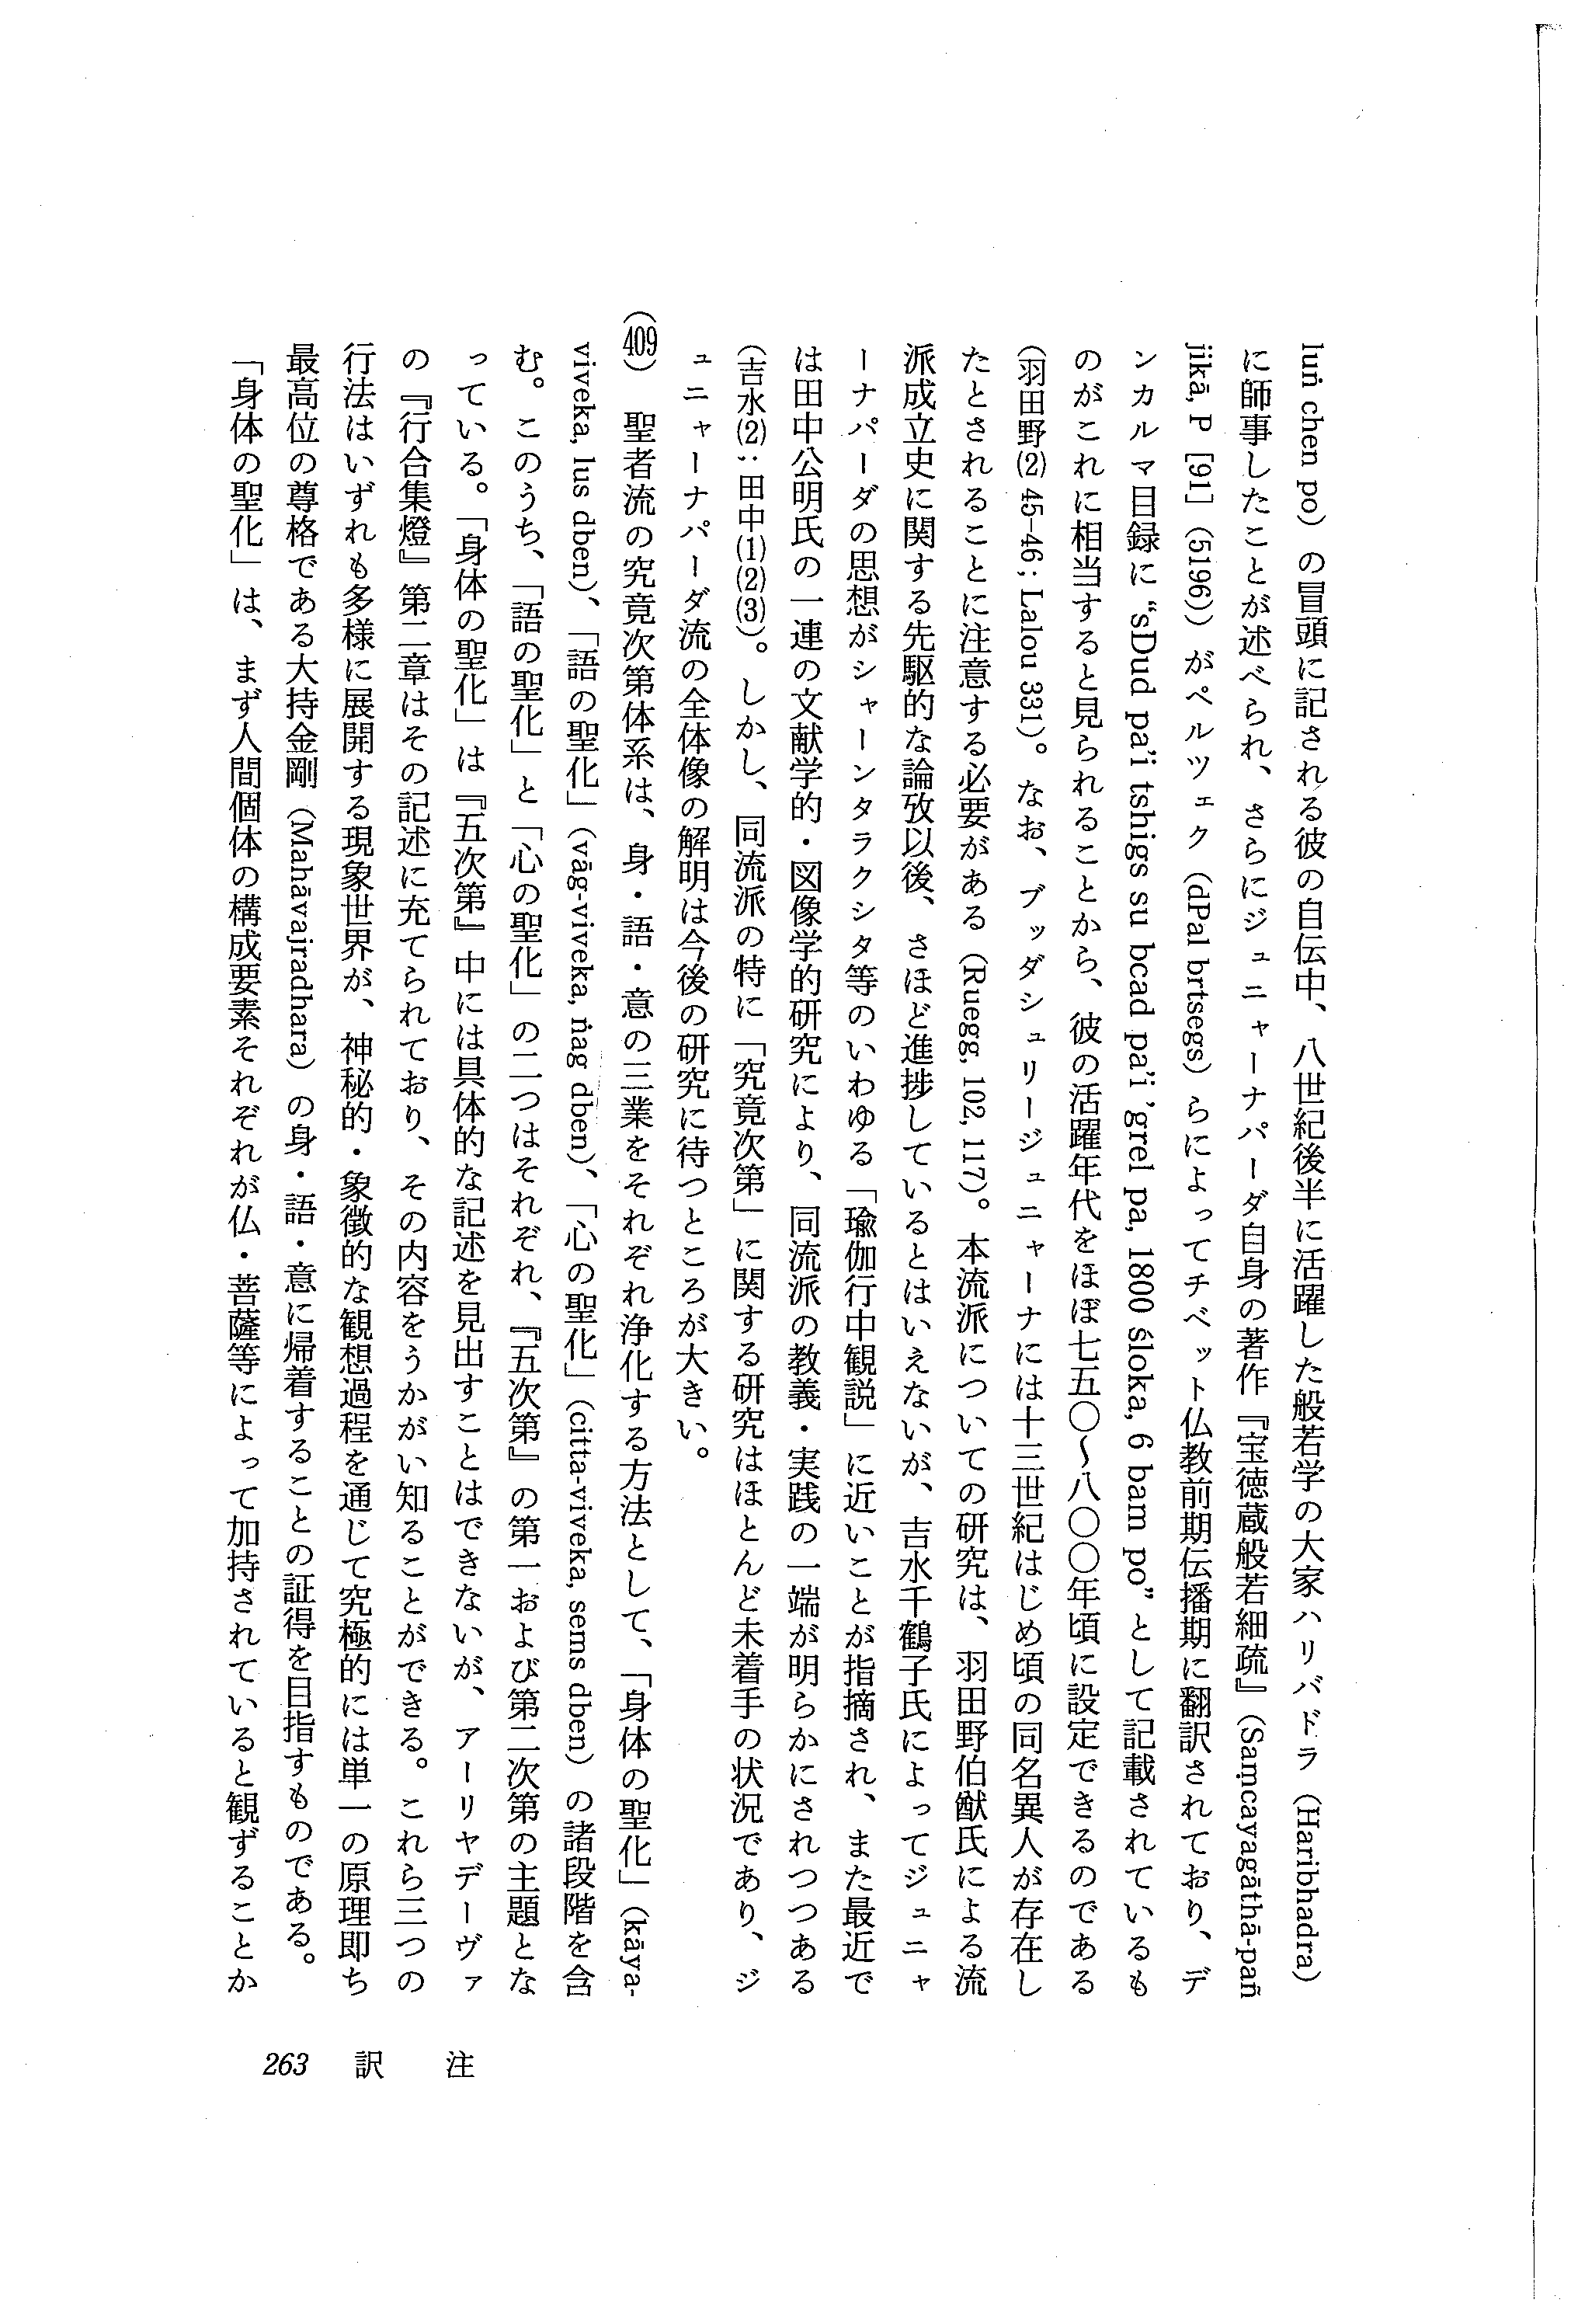 luṅ chen po）の冒頭に記される彼の自伝中、八世紀後半に活躍した般若学の大家ハリバドラ（Haribhadra）
に師事したことが述べられ、さらにジュニャーナパーダ自身の著作『宝徳蔵般若細疏』（Saṃcayagāthā-pañ
jikā, P [91]（5196））がペルツェク（dPal brtsegs）らによってチベット仏教前期伝播期に翻訳されており、デ
ンカルマ目録に“sDud pa'i tshigs su bcad pa'i 'grel pa, 1800 śloka, 6 bam po”として記載されているも
のがこれに相当すると見られることから、彼の活躍年代をほぼ七五〇〜八〇〇年頃に設定できるのである
（羽田野(2) 45-46; Lalou 331）。なお、ブッダシュリージュニャーナには十三世紀はじめ頃の同名異人が存在し
たとされることに注意する必要がある（Ruegg, 102, 117）。本流派についての研究は、羽田野伯猷氏による流
派成立史に関する先駆的な論攷以後、さほど進捗しているとはいえないが、吉水千鶴子氏によってジュニャ
ーナパーダの思想がシャーンタラクシタ等のいわゆる「瑜伽行中観説」に近いことが指摘され、また最近で
は田中公明氏の一連の文献学的・図像学的研究により、同流派の教義・実践の一端が明らかにされつつある
（吉水(2); 田中(1)(2)(3)）。しかし、同流派の特に「究竟次第」に関する研究はほとんど未着手の状況であり、ジ
ュニャーナパーダ流の全体像の解明は今後の研究に待つところが大きい。
（409）　聖者流の究竟次第体系は、身・語・意の三業をそれぞれ浄化する方法として、「身体の聖化」（kāya-
viveka, lus dben）、「語の聖化」（vāg-viveka, ṅag dben）、「心の聖化」（citta-viveka, sems dben）の諸段階を含
む。このうち、「語の聖化」と「心の聖化」の二つはそれぞれ、『五次第』の第一および第二次第の主題とな
っている。「身体の聖化」は『五次第』中には具体的な記述を見出すことはできないが、アーリヤデーヴァ
の『行合集燈』第二章はその記述に充てられており、その内容をうかがい知ることができる。これら三つの
行法はいずれも多様に展開する現象世界が、神秘的・象徴的な観想過程を通じて究極的には単一の原理即ち
最高位の尊格である大持金剛（Mahāvajradhara）の身・語・意に帰着することの証得を目指すものである。
「身体の聖化」は、まず人間個体の構成要素それぞれが仏・菩薩等によって加持されていると観ずることか
263　訳　注